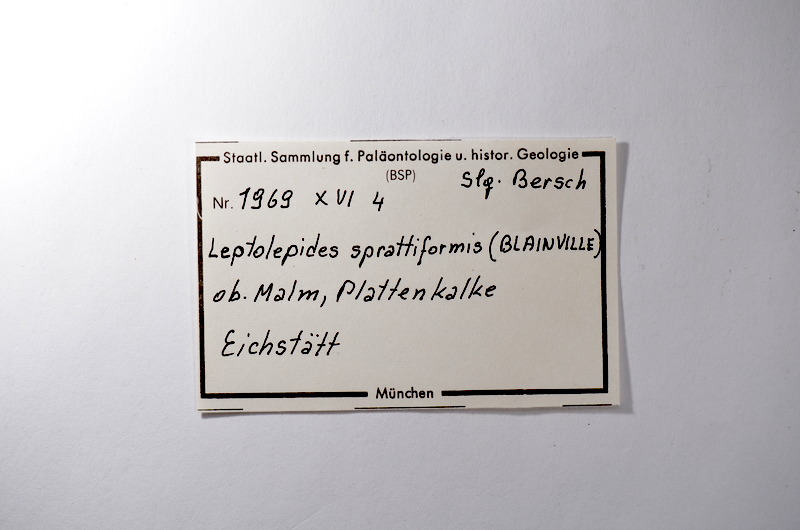 Staatl. Sammlung f. Paläontologie u. histor. Geologie
(BSP) Slg. Bersch
Nr. 1969 XVI 4
Leptolepides sprattiformis (BLAINVILLE)
ob. Malm, Plattenkalke
Eichstätt
München